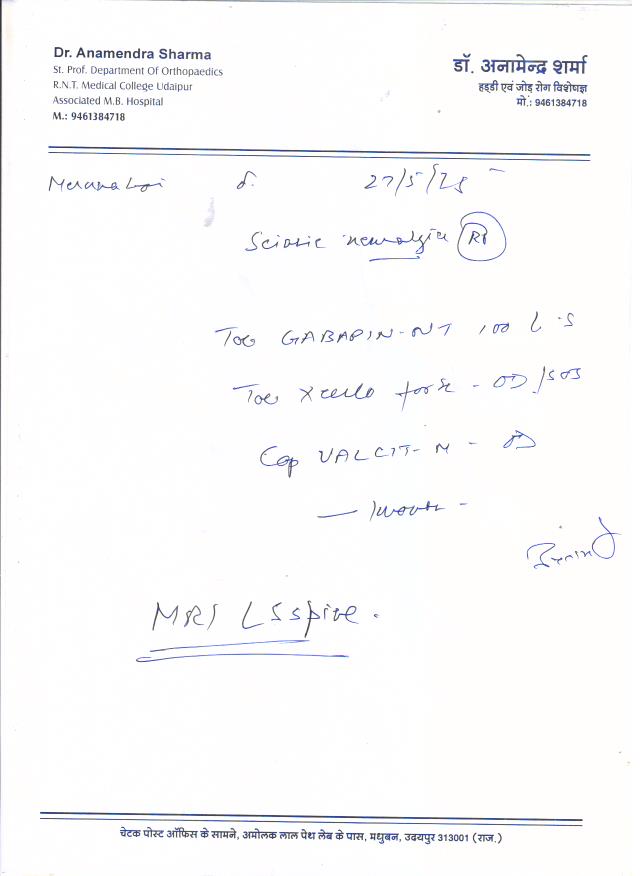 Dr. Anamendra Sharma
St. Prof. Department Of Orthopaedics
R.N.T. Medical College Udaipur
Associated M.B. Hospital
M.: 9461384718
डॉ. अनामेन्द्र शर्मा
हड्डी एवं जोड़ रोग विशेषज्ञ
मो.: 9461384718
27/5/25
Sciatic neuralgia Rt
Tab GABAPIN-NT 100
Tab forte - OD/SOS
Cap VALCIT-M - OD
- 1 month -
MRI LS spine.
चेटक पोस्ट ऑफिस के सामने, अमोलक लाल पेथ लेब के पास, मधुबन, उदयपुर 313001 (राज.)